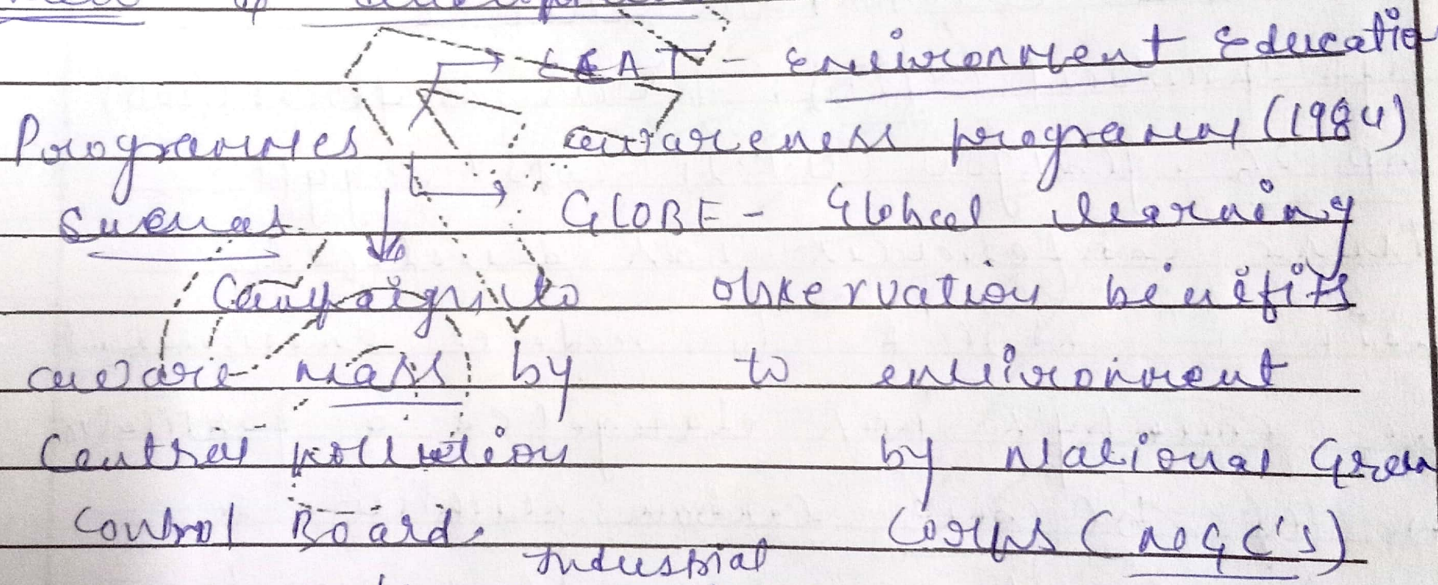 EEAT - Environment Educatio
Programmes awareness program (1984)
GLOBE - Global learning
Campaign to observation benifits
aware mass by to environment
Central pollution by National Green
Control Board. Corps (NGC's)
Industrial